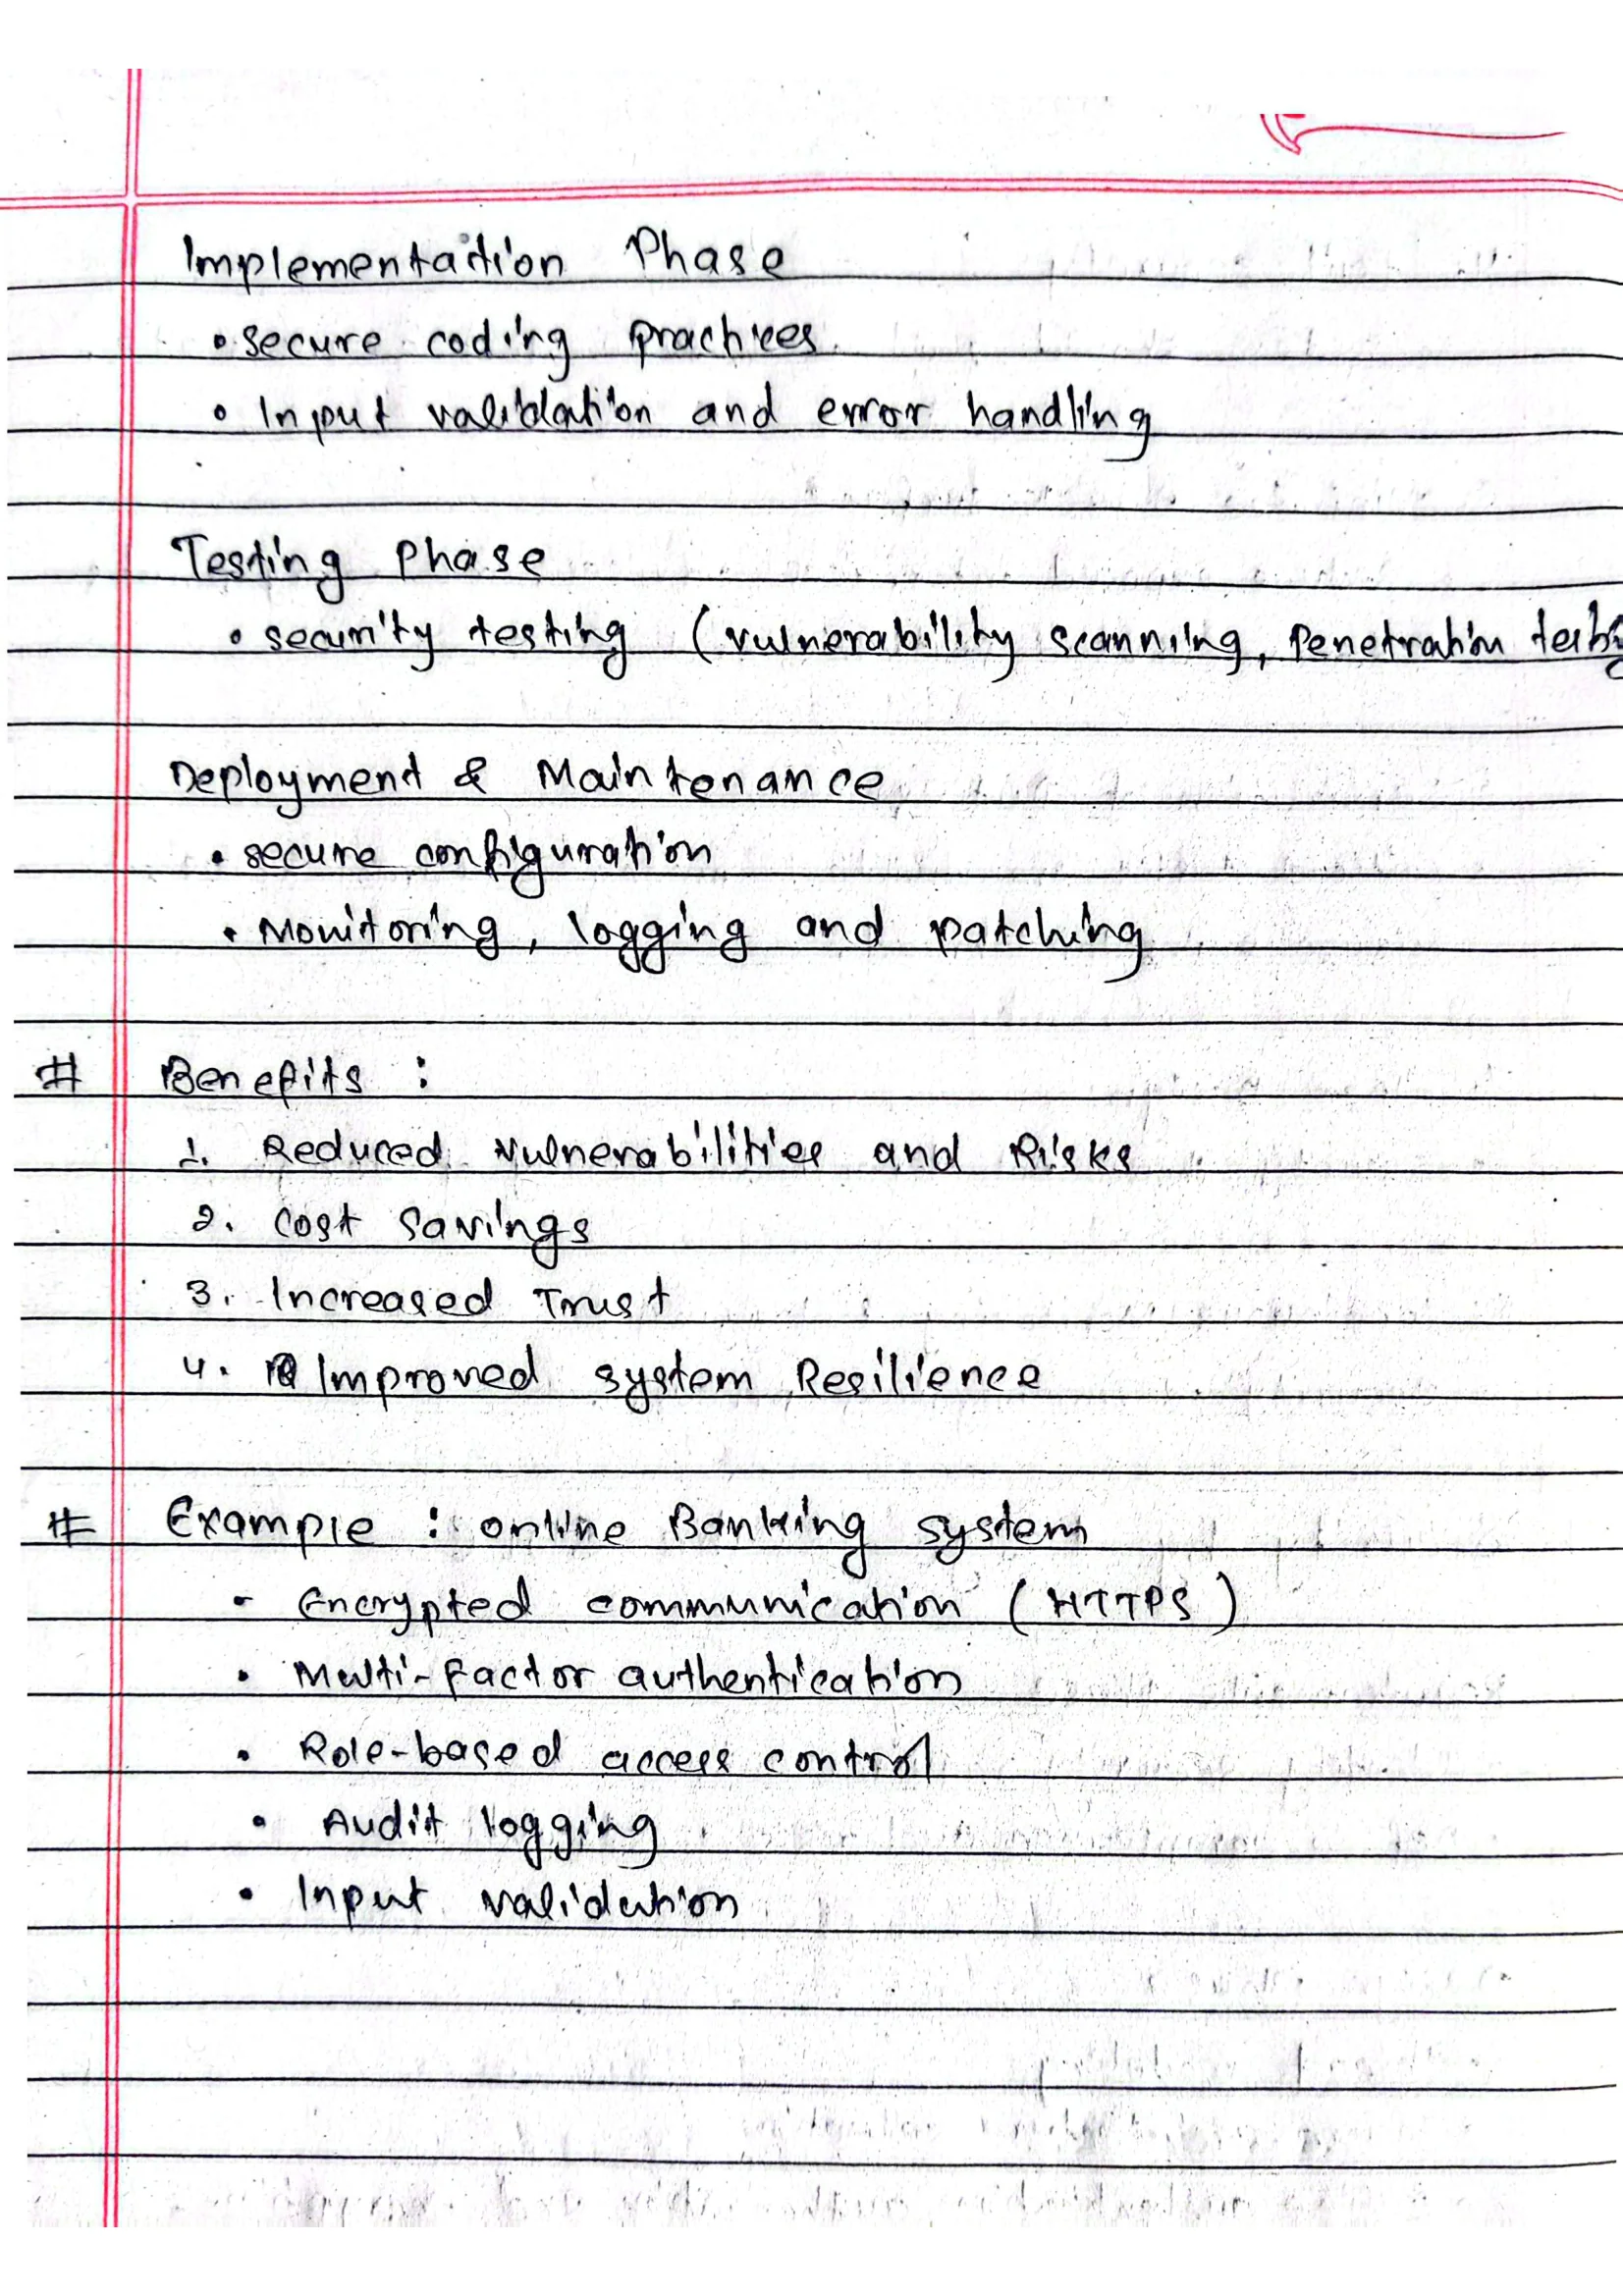 Implementation Phase
• secure coding practices
• Input validation and error handling
Testing Phase
• security testing (vulnerability scanning, Penetration testing
Deployment & Maintenance
• secure configuration
• Monitoring, logging and patching
# Benefits :
1. Reduced Vulnerabilities and Risks
2. Cost Savings
3. Increased Trust
4. Improved system Resilience
# Example : online Banking system
- Encrypted communication (HTTPS)
• Multi-factor authentication
• Role-based access control
• Audit logging
• Input validation